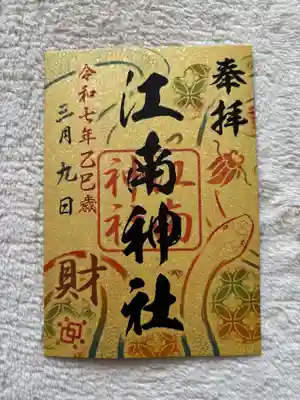 奉拝
江南神社
江南神社
令和七年乙巳歳
三月九日
財